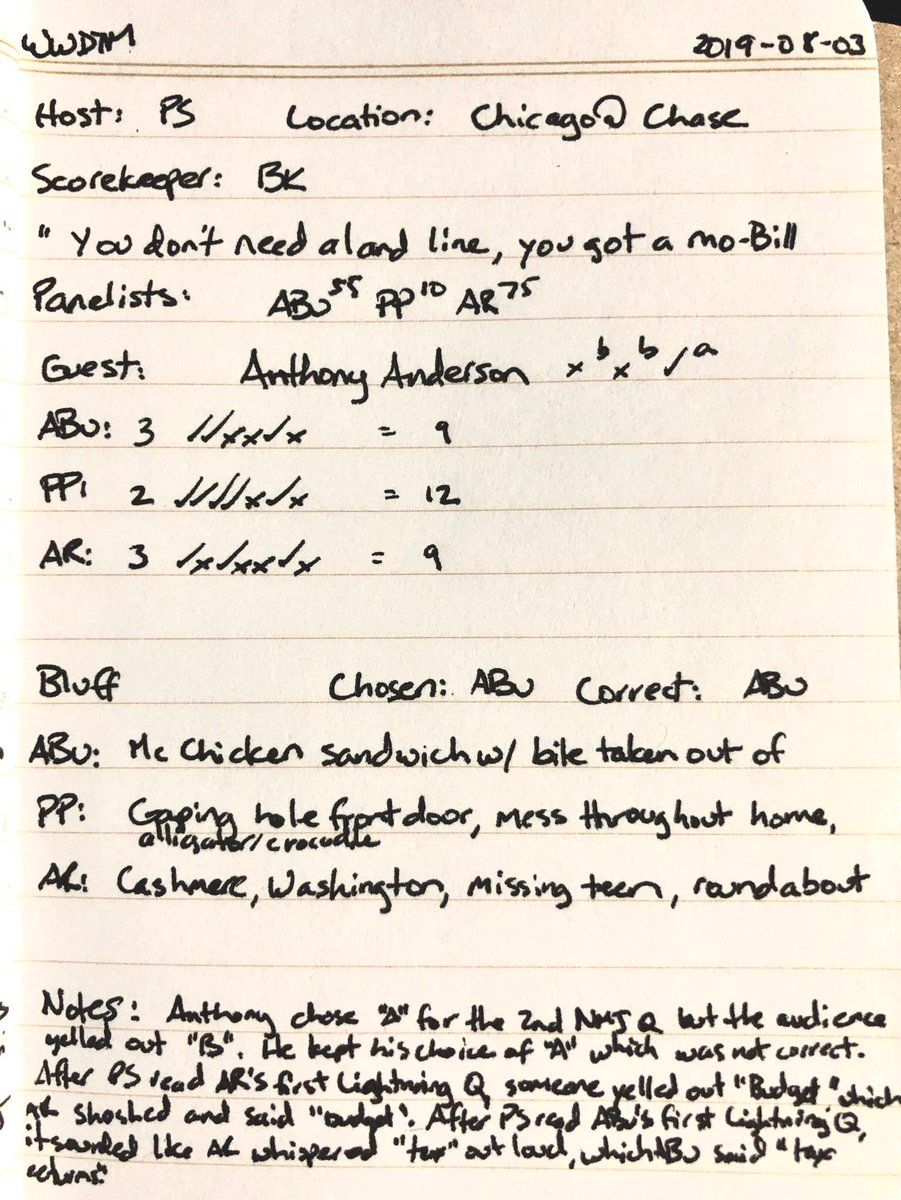 WWDTM 2019-08-03
Host: PS Location: Chicago @ Chase
Scorekeeper: BK
" You don't need a land line, you got a mo-Bill
Panelists: ABu 55 PP 10 AR 75
Guest: Anthony Anderson x b x b ✓ a
ABu: 3 ✓✓xx✓x = 9
PP: 2 ✓✓✓✓x✓x = 12
AR: 3 ✓x✓xx✓x = 9
Bluff Chosen: ABu Correct: ABu
ABu: Mc Chicken sandwich w/ bite taken out of
PP: Gaping hole front door, mess throughout home,
alligator/crocodile
AR: Cashmere, Washington, missing teen, roundabout
Notes: Anthony chose "A" for the 2nd NMJ Q but the audience
yelled out "B". He kept his choice of "A" which was not correct.
After PS read AR's first Lightning Q someone yelled out "Budget" which
AR shushed and said "budget". After PS read ABu's first Lightning Q,
it sounded like AR whispered "tax" out loud, which ABu said "tax
returns"